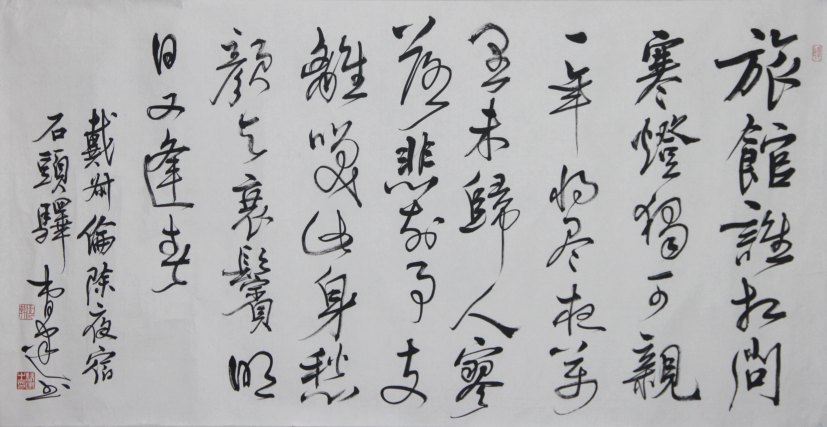 旅館誰相問
寒燈獨可親
一年将尽夜萬
里未歸人寥
落悲前事支
離笑此身愁
顏与衰鬢明
日又逢春
戴叔倫除夜宿
石頭驛